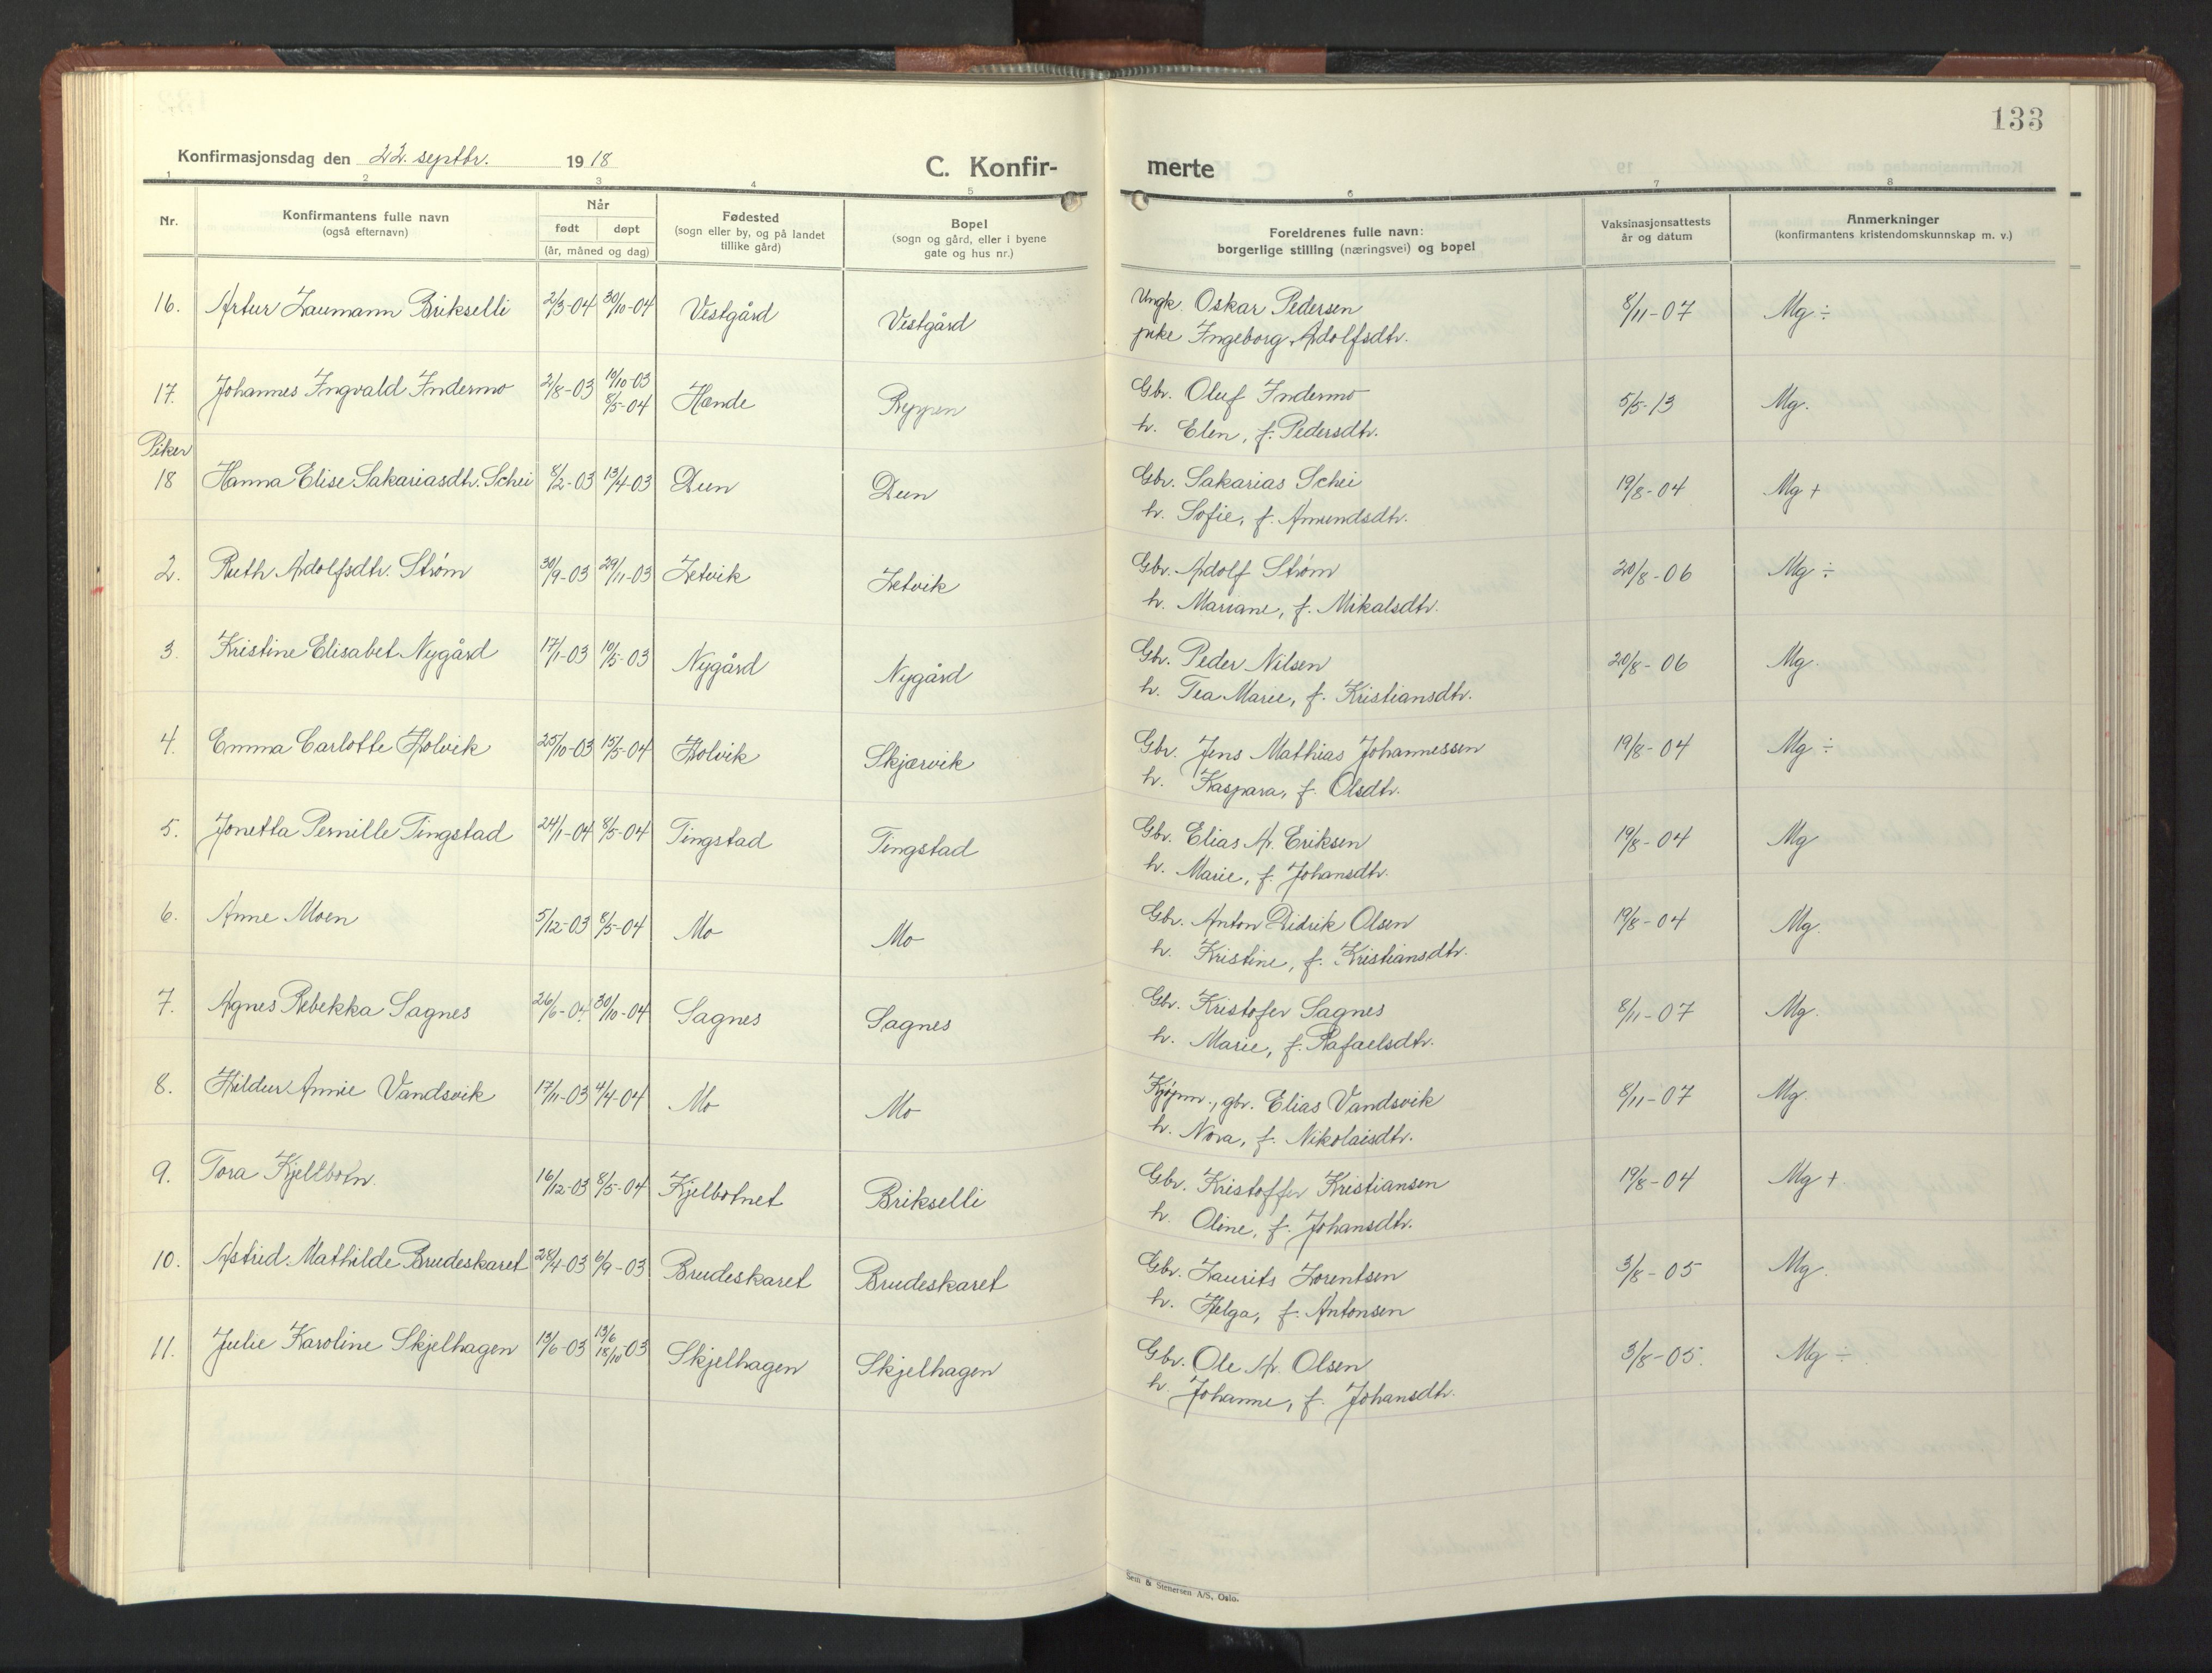 133
Konfirmasjonsdag den 22. septbr. 1918
C. Konfir-
merte
1 2 3 4 5 6 7 8
Nr.
Konfirmantens fulle navn
(også efternavn)
Når
født døpt
(år, måned og dag)
Fødested
(sogn eller by, og på landet
tillike gård)
Bopel
(sogn og gård, eller i byene
gate og hus nr.)
Foreldrenes fulle navn:
borgerlige stilling (næringsvei) og bopel
Vaksinasjonsattests
år og datum
Anmerkninger
(konfirmantens kristendomskunnskap m. v.)
16. Artur Laumann Brikselli 2/3-04 30/10-04 Vestgård Vestgård Ungk. Oskar Pedersen 8/11-07 Mg ÷
pike Ingeborg Adolfsdtr.
17. Johannes Ingvald Indermo 2/8-03 19/10-03 Hænde Reppen Gbr. Oluf Indermo 5/5-13 Mg.
8/5-04
h. Elen, f. Pedersdtr.
Piker
18 Hanna Elise Sakariasdtr. Schei 8/2-03 13/4-03 Dun Dun Gbr. Sakarias Schei 19/8-04 Mg +
h. Sofie, f. Amundsdtr.
2. Ruth Adolfsdtr. Strøm 30/9-03 29/11-03 Letvik Letvik Gbr. Adolf Strøm 20/8-06 Mg ÷
h. Mariane, f. Mikalsdtr.
3. Kristine Elisabet Nygård 17/1-03 10/5-03 Nygård Nygård Gbr. Peder Nilsen 20/8-06 Mg.
h. Tea Marie, f. Kristiansdtr.
4. Emma Carlotte Holvik 25/10-03 15/5-04 Holvik Skjærvik Gbr. Jens Mathias Johannessen 19/8-04 Mg ÷
h. Kaspara, f. Olsdtr.
5. Jonetta Pernille Tingstad 24/1-04 8/5-04 Tingstad Tingstad Gbr. Elias A. Eriksen 19/8-04 Mg
h. Marie, f. Johansdtr.
6. Anne Moen 5/12-03 8/5-04 Mo Mo Gbr. Anton Didrik Olsen 19/8-04 Mg.
h. Kristine, f. Kristiansdtr.
7. Agnes Rebekka Sagnes 26/6-04 30/10-04 Sagnes Sagnes Gbr. Kristofer Sagnes 8/11-07 Mg.
h. Marie, f. Rafaelsdtr.
8. Hildur Annie Vandsvik 17/11-03 4/4-04 Mo Mo Kjøpm., gbr. Elias Vandsvik 8/11-07 Mg.
h. Nora, f. Nikolaisdtr.
9. Tora Kjeltbotn 16/12-03 8/5-04 Kjelbotnet Brikselli Gbr. Kristoffer Kristiansen 19/8-04 Mg +
h. Oline, f. Johansdtr.
10. Astrid Mathilde Brudeskaret 28/4-03 6/9-03 Brudeskaret Brudeskaret Gbr. Laurits Lorentsen 3/8-05 Mg.
h. Helga, f. Antonsen
11. Julie Karoline Skjelhagen 13/6-03 13/6 18/10-03 Skjelhagen Skjelhagen Gbr. Ole A. Olsen 3/8-05. Mg ÷
h. Johanne, f. Johansdtr.
Sem & Stenersen A/S, Oslo.